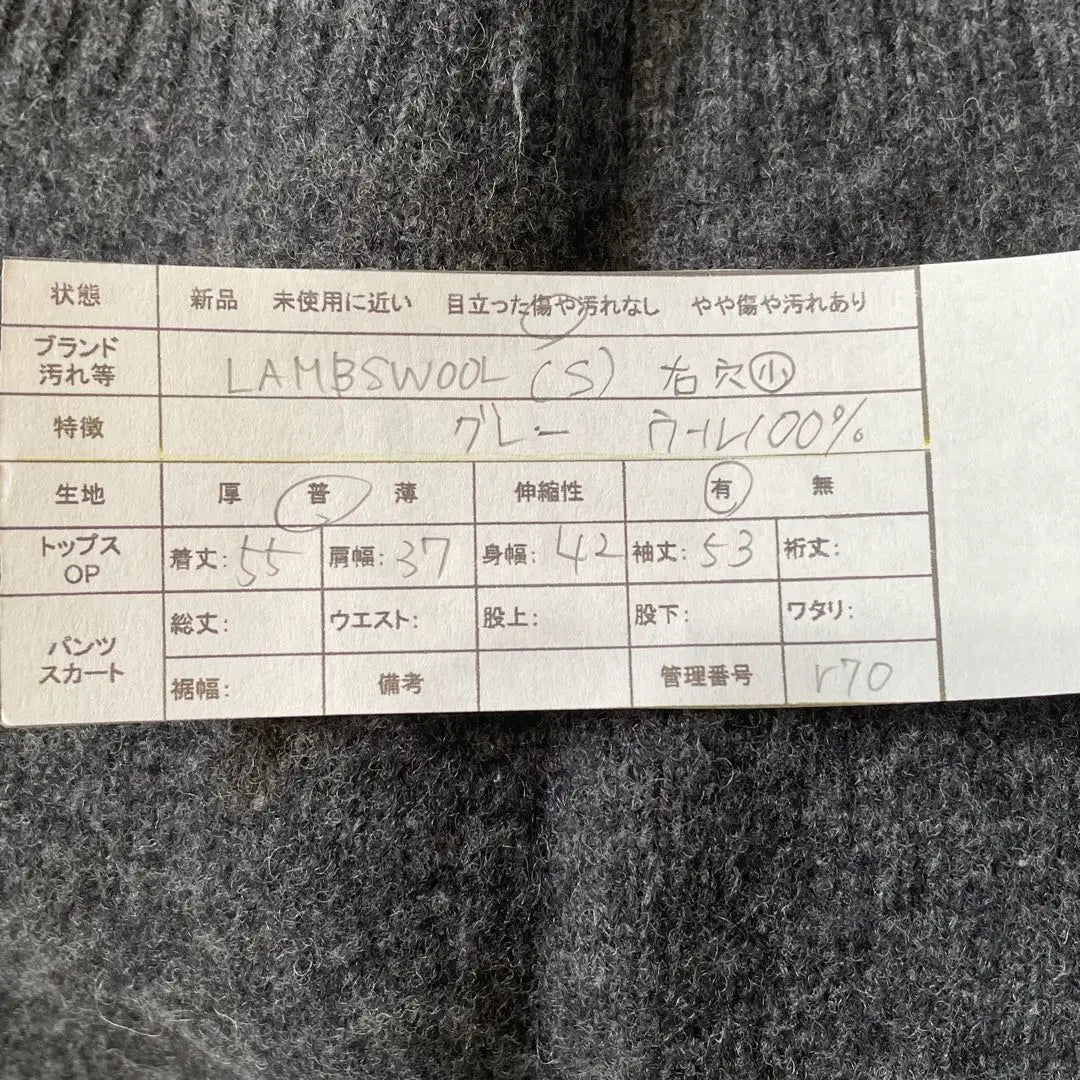 状態 新品 未使用に近い 目立った傷や汚れなし やや傷や汚れあり
ブランド
汚れ等 LAMBSWOOL (S) 右穴小
特徴 グレー ウール100%
生地 厚 普 薄 伸縮性 有 無
トップス
OP 着丈: 55 肩幅: 37 身幅: 42 袖丈: 53 裄丈:
パンツ
スカート 総丈: ウエスト: 股上: 股下: ワタリ:
裾幅: 備考 管理番号 r70